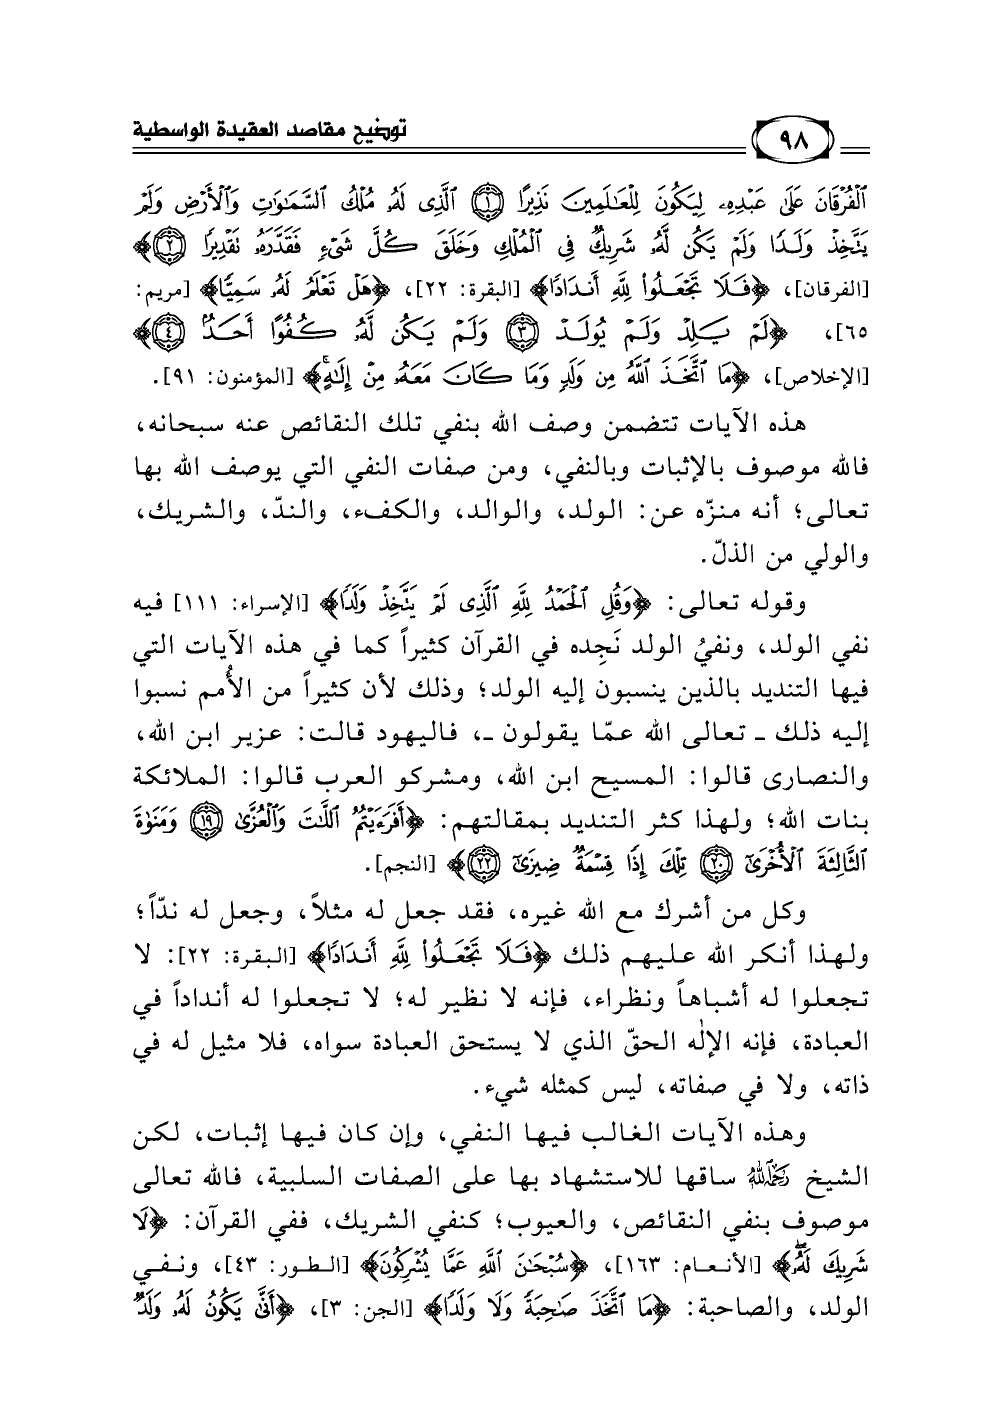 توضيح مقاصد العقيدة الواسطية
٩٨
ٱلْفُرْقَانَ عَلَىٰ عَبْدِهِۦ لِيَكُونَ لِلْعَـٰلَمِينَ نَذِيرًا ۝١ ٱلَّذِى لَهُۥ مُلْكُ ٱلسَّمَـٰوَٰتِ وَٱلْأَرْضِ وَلَمْ
يَتَّخِذْ وَلَدًا وَلَمْ يَكُن لَّهُۥ شَرِيكٌ فِى ٱلْمُلْكِ وَخَلَقَ كُلَّ شَىْءٍ فَقَدَّرَهُۥ تَقْدِيرًا ۝٢﴾
[الفرقان]، ﴿فَلَا تَجْعَلُوا۟ لِلَّهِ أَندَادًا﴾ [البقرة: ٢٢]، ﴿هَلْ تَعْلَمُ لَهُۥ سَمِيًّا﴾ [مريم:
٦٥]، ﴿لَمْ يَلِدْ وَلَمْ يُولَدْ ۝٣ وَلَمْ يَكُن لَّهُۥ كُفُوًا أَحَدٌۢ ۝٤﴾
[الإخلاص]، ﴿مَا ٱتَّخَذَ ٱللَّهُ مِن وَلَدٍ وَمَا كَانَ مَعَهُۥ مِنْ إِلَـٰهٍۚ﴾ [المؤمنون: ٩١].
هذه الآيات تتضمن وصف الله بنفي تلك النقائص عنه سبحانه،
فالله موصوف بالإثبات وبالنفي، ومن صفات النفي التي يوصف الله بها
تعالى؛ أنه منزّه عن: الولد، والوالد، والكفء، والندّ، والشريك،
والولي من الذلّ.
وقوله تعالى: ﴿وَقُلِ ٱلْحَمْدُ لِلَّهِ ٱلَّذِى لَمْ يَتَّخِذْ وَلَدًا﴾ [الإسراء: ١١١] فيه
نفي الولد، ونفيُ الولد نَجِده في القرآن كثيراً كما في هذه الآيات التي
فيها التنديد بالذين ينسبون إليه الولد؛ وذلك لأن كثيراً من الأُمم نسبوا
إليه ذلك ـ تعالى الله عمّا يقولون ـ، فاليهود قالت: عزير ابن الله،
والنصارى قالوا: المسيح ابن الله، ومشركو العرب قالوا: الملائكة
بنات الله؛ ولهذا كثر التنديد بمقالتهم: ﴿أَفَرَءَيْتُمُ ٱللَّـٰتَ وَٱلْعُزَّىٰ ۝١٩ وَمَنَوٰةَ
ٱلثَّالِثَةَ ٱلْأُخْرَىٰٓ ۝٢٠ تِلْكَ إِذًا قِسْمَةٌ ضِيزَىٰٓ ۝٢٢﴾ [النجم].
وكل من أشرك مع الله غيره، فقد جعل له مثلاً، وجعل له ندّاً؛
ولهذا أنكر الله عليهم ذلك ﴿فَلَا تَجْعَلُوا۟ لِلَّهِ أَندَادًا﴾ [البقرة: ٢٢]: لا
تجعلوا له أشباهاً ونظراء، فإنه لا نظير له؛ لا تجعلوا له أنداداً في
العبادة، فإنه الإلٰه الحقّ الذي لا يستحق العبادة سواه، فلا مثيل له في
ذاته، ولا في صفاته، ليس كمثله شيء.
وهذه الآيات الغالب فيها النفي، وإن كان فيها إثبات، لكن
الشيخ رحمه الله ساقها للاستشهاد بها على الصفات السلبية، فالله تعالى
موصوف بنفي النقائص، والعيوب؛ كنفي الشريك، ففي القرآن: ﴿لَا
شَرِيكَ لَهُۥۖ﴾ [الأنعام: ١٦٣]، ﴿سُبْحَـٰنَ ٱللَّهِ عَمَّا يُشْرِكُونَ﴾ [الطور: ٤٣]، ونفي
الولد، والصاحبة: ﴿مَا ٱتَّخَذَ صَـٰحِبَةً وَلَا وَلَدًا﴾ [الجن: ٣]، ﴿أَنَّىٰ يَكُونُ لَهُۥ وَلَدٌ